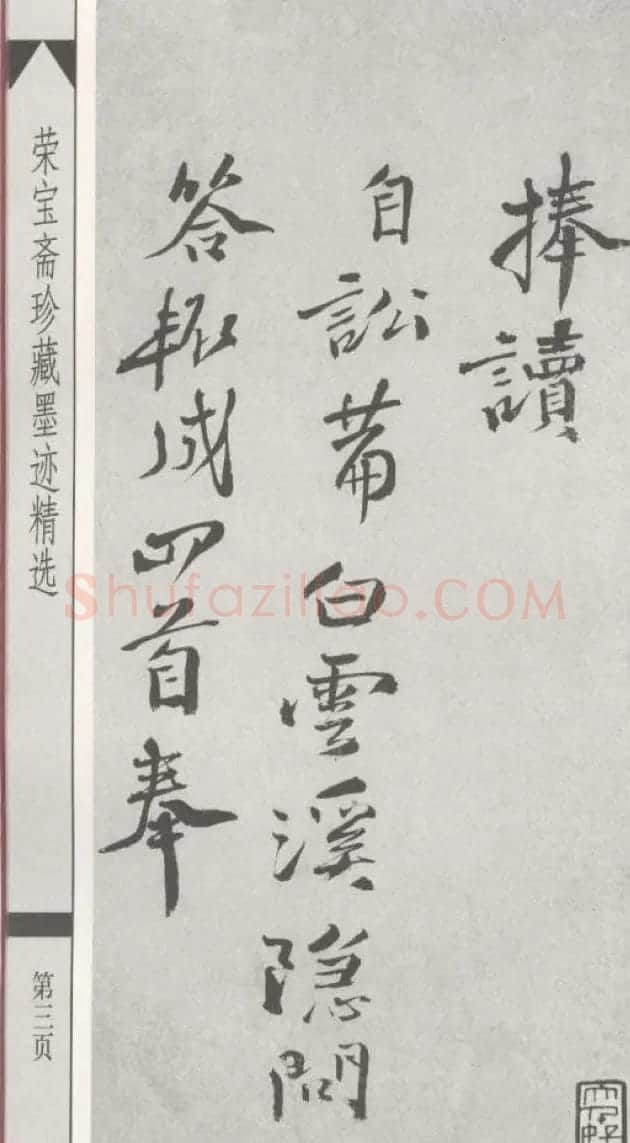 捧讀
自訟白雲溪隐問
答輒成四首奉
荣宝斋珍藏墨迹精选
第三页
Shufaziliao.COM